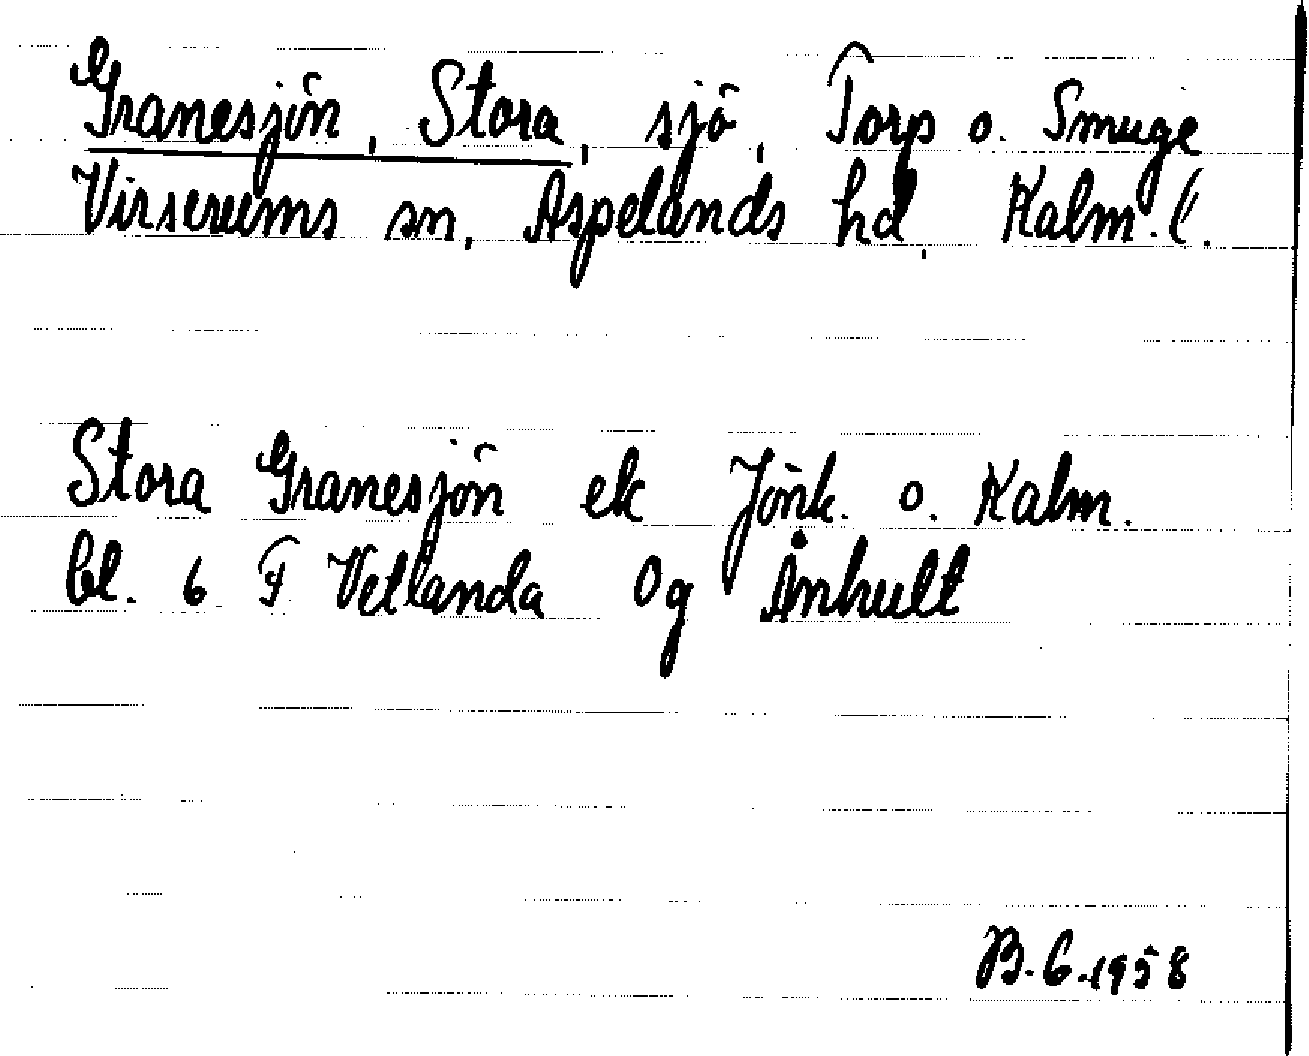 Granesjön, Stora, sjö, Torp o. Smuge
Virserums sn, Aspelands hd, Kalm. l.
Stora Granesjön ek Jönk. o. Kalm.
bl. 6 F Vetlanda Og Änhult
B. G. 1958